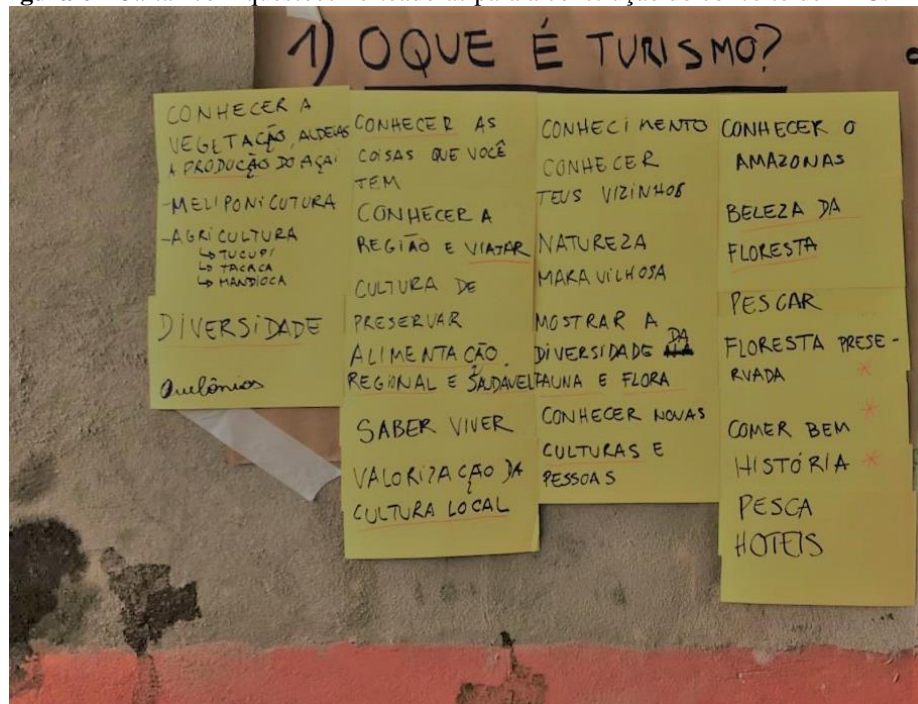 1) O QUE É TURISMO?
CONHECER A
VEGETAÇÃO, ALDEIAS
A PRODUCÇÃO DO AÇAI
-MELIPONICUTURA
-AGRICULTURA
↳ TUCUPI
↳ TACACA
↳ MANDIOCA
DIVERSIDADE
Quelônios
CONHECER AS
COISAS QUE VOCÊ
TEM
CONHECER A
REGIÃO E VIAJAR
CULTURA DE
PRESERVAR
ALIMENTAÇÃO
REGIONAL E SAUDÁVEL
SABER VIVER
VALORIZAÇÃO DA
CULTURA LOCAL
CONHECIMENTO
CONHECER
TEUS VIZINHOS
NATUREZA
MARAVILHOSA
MOSTRAR A
DIVERSIDADE DA
FAUNA E FLORA
CONHECER NOVAS
CULTURAS E
PESSOAS
CONHECER O
AMAZONAS
BELEZA DA
FLORESTA
PESCAR
FLORESTA PRESE-
RVADA *
COMER BEM *
HISTÓRIA *
PESCA
HOTEIS